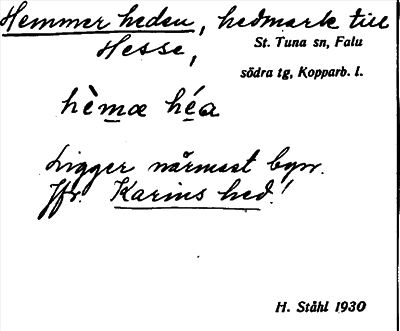 Hemmer heden, hedmark till
Hesse,
St. Tuna sn, Falu
södra tg, Kopparb. l.
hèmæ héa
Ligger närmast byn.
Jfr. Karins hed!
H. Ståhl 1930